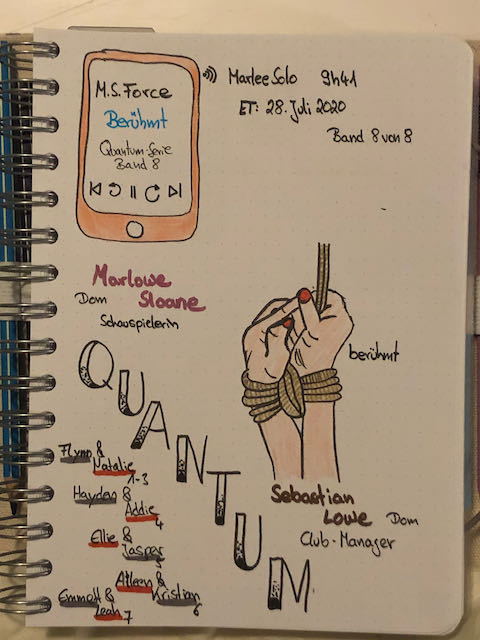 M.S. Force
Berühmt
Quantum-Serie
Band 8
Marlee Solo 9h41
ET: 28. Juli 2020
Band 8 von 8
Marlowe
Sloane
Dom
Schauspielerin
berühmt
QUANTUM
Flynn &
Natalie
1-3
Hayden &
Addie
4
Ellie &
Jasper
5
Aileen &
Kristian
6
Emmett &
Leah 7
Sebastian
Lowe Dom
Club-Manager